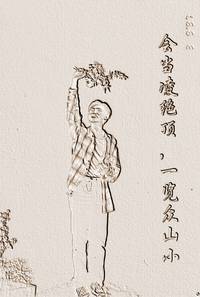 会当凌绝顶，一览众山小